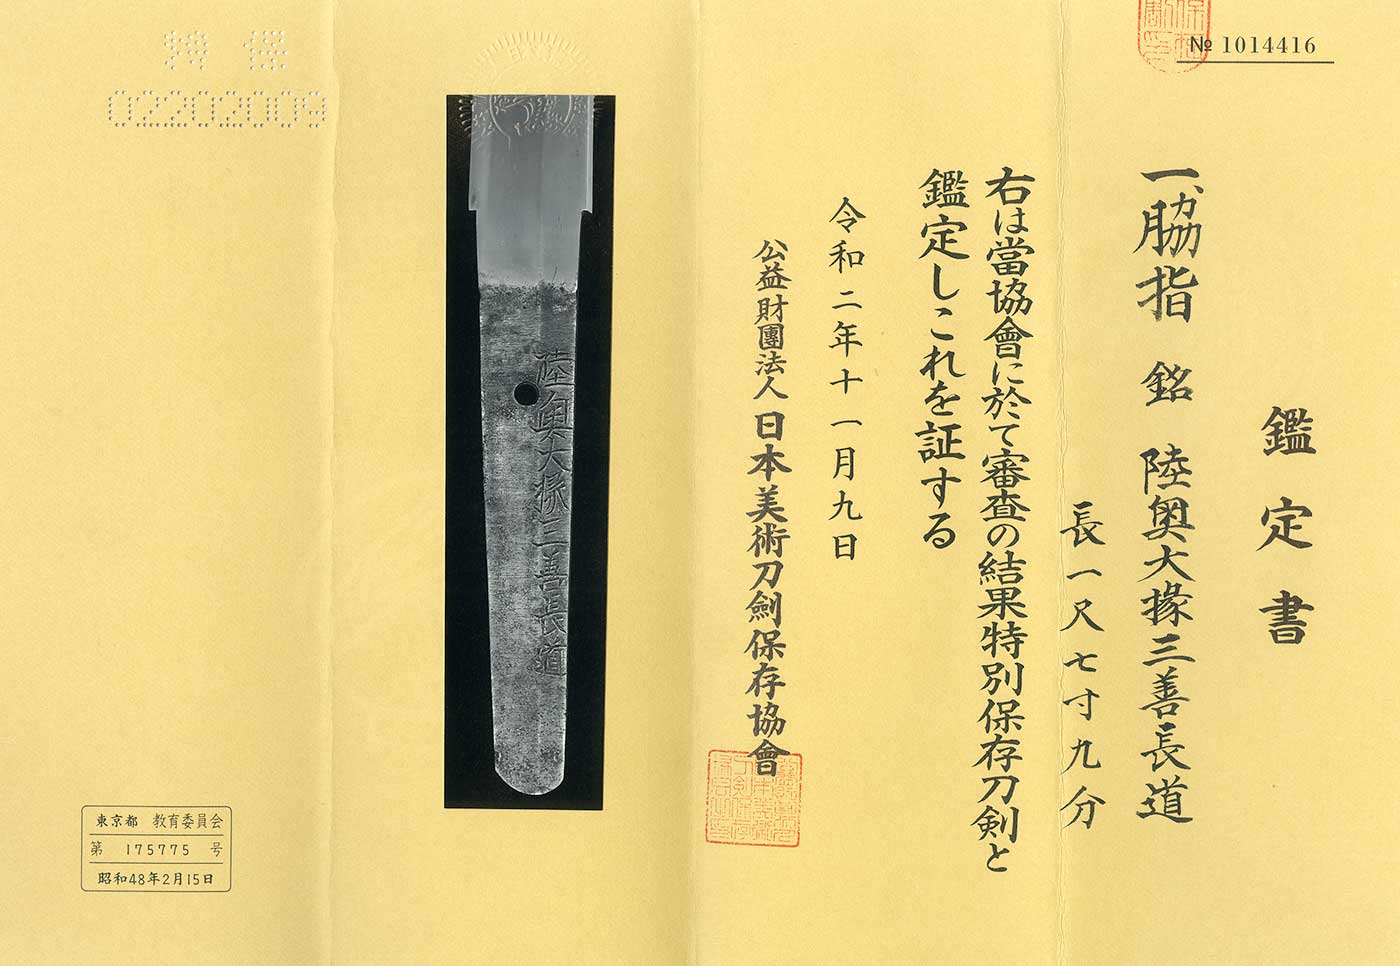 № 1014416
鑑定書
一、脇指 銘 陸奥大掾三善長道
長一尺七寸九分
右は當協會に於て審査の結果特別保存刀剣と
鑑定しこれを証する
令和二年十一月九日
公益財團法人 日本美術刀劍保存協會
陸奥大掾三善長道
特保
02202009
東京都 教育委員会
第 175775 号
昭和48年2月15日